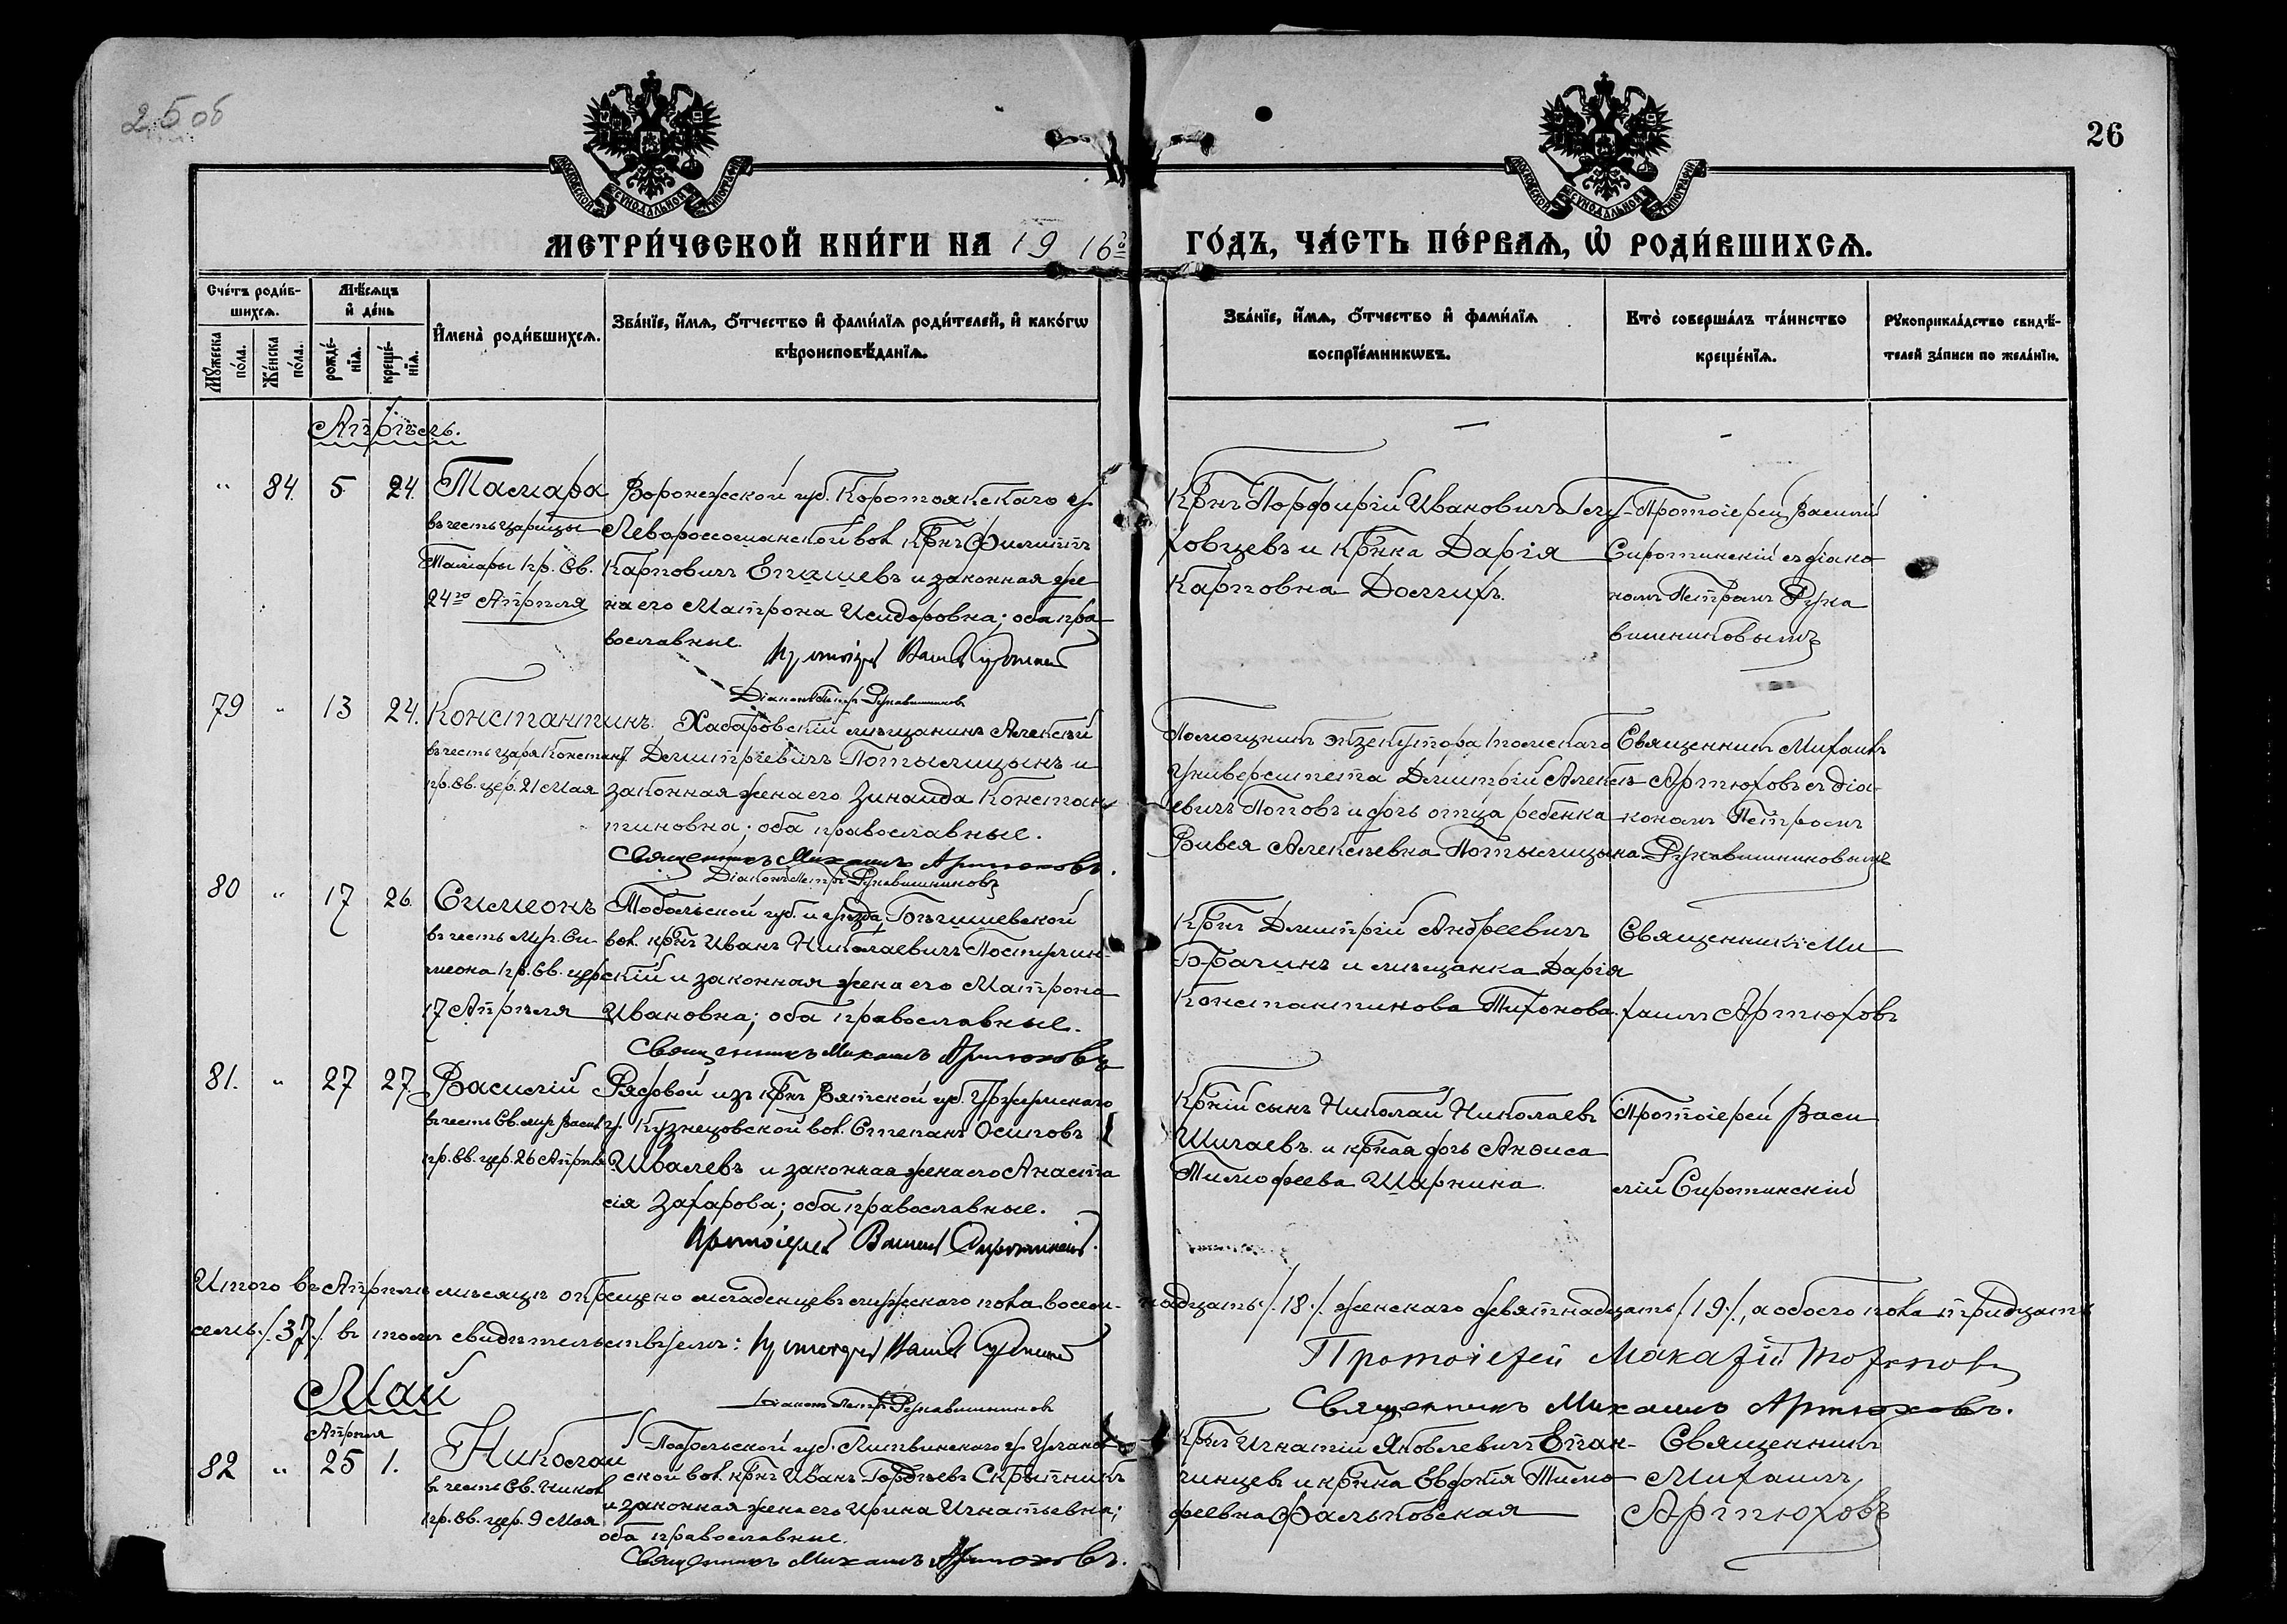 25 об
26
МОСКОВСКОЙ СѴНОДАЛЬНОЙ ТИПОГРАФІИ
МОСКОВСКОЙ СѴНОДАЛЬНОЙ ТИПОГРАФІИ
МЕТРИ́ЧЕСКОЙ КНИ́ГИ НА 1916й ГО́ДЪ, ЧА́СТЬ ПЕ́РВАѦ, Ѽ РОДИ́ВШИХСѦ.
Сче́тъ роди́вшихсѧ.
Мѣ́сѧцъ и҆ де́нь
Мꙋ́жеска по́ла.
Же́нска по́ла.
рожде́нїѧ.
креще́нїѧ.
И҆мена̀ роди́вшихсѧ.
Зва́нїе, и҆́мѧ, ѻ҆́тчество и҆ фамилїѧ роди́телей, и҆ како́гѡ
вѣроисповѣ́данїѧ.
Зва́нїе, и҆́мѧ, ѻ҆́тчество и҆ фами́лїѧ
воспрїе́мникѡвъ.
Кто̀ соверша́лъ та́инство
креще́нїѧ.
Рꙋкоприкла́дство свидѣ́-
телей за́писи по жела́нїю.
Апрѣль.
" 84. 5 24. Тамара
въ честь царицы
Тамары пр. Св.
24го Апрѣля
Воронежской губ. Коротоякскаго у.
Левороссошанской вол. крнъ Филиппъ
Карповичъ Епишевъ и законная же
на его Матрона Исидоровна; оба пра
вославные.
Протоіерей Василій Сиротинскій
Діаконъ Петръ Рукавишниковъ
Крнъ Порфирій Ивановичъ
ховцевъ и крнка Дарія
Карповна Долгихъ.
Протоіерей Василій
Сиротинскій съ діако
номъ Петромъ Рука
вишниковымъ
79 " 13 24. Константинъ
въ честь царя Констант.
пр. Св. цер. 21 Мая
Хабаровскій мѣщанинъ Алексѣй
Димитріевичъ Потылицынъ и
законная жена его Зинаида Констан
тиновна; оба православные.
Священникъ Михаилъ Артюховъ.
Діаконъ Петръ Рукавишниковъ
Помощникъ экзекутора Томскаго
Университета Димитрій Алексѣ
евичъ Поповъ и дочь отца ребенка
Вивея Алексѣевна Потылицына
Священникъ Михаилъ
Артюховъ съ діа-
кономъ Петромъ
Рукавишниковымъ
80 " 17 26 Симеонъ
въ честь муч. Си-
меона пр. Св. цер
17 Апрѣля
Тобольской губ. и уѣзда,
вол. крнъ Иванъ Николаевичъ
скій и законная жена его Матрона
Ивановна; оба православные.
Священникъ Михаилъ Артюховъ
Крнъ Димитрій Андреевичъ
и мѣщанка Дарія
Константинова Тихонова.
Священникъ Ми
хаилъ Артюховъ
81. " 27 27 Василій
въ честь Св. муч. Васил.
пр. Св. цер. 26 Апрѣля
Рядовой изъ крнъ Вятской губ. Уржумскаго
у. Кузнецовской вол. Степанъ Осиповъ
Ивалевъ и законная жена его Анаста
сія Захарова; оба православные.
Протоіерей Василій Сиротинскій.
Крній сынъ Николай Николаевъ
Шигаевъ и крная дочь Анѳиса
Тимофеева Шарнина.
Протоіерей Васи
лій Сиротинскій
Итого въ Апрѣлѣ мѣсяцѣ окрещено младенцевъ мужескаго пола восем-надцать /.18./ женскаго девятнадцать /.19./, а обоего пола тридцать
семь /.37./ въ томъ свидѣтельствуемъ: Протоіерей Василій Сиротинскій
Протоіерей Макарій
Діаконъ Петръ Рукавишниковъ
Священникъ Михаилъ Артюховъ.
Май
Апрѣля
82 " 25 1. Николай
въ честь Св. Никол
пр. Св. цер. 9 Мая
Подольской губ. Литвинскаго у. Уланов
ской вол. крнъ Иванъ Гордѣевъ Скрыпникъ
и законная жена его Ирина Игнатьевна;
оба православные.
Священникъ Михаилъ Артюховъ.
Крнъ Игнатій Яковлевичъ Епан-
чинцев и крнка Евдокія Тимо
феевна Фальковская
Священникъ
Михаилъ
Артюховъ